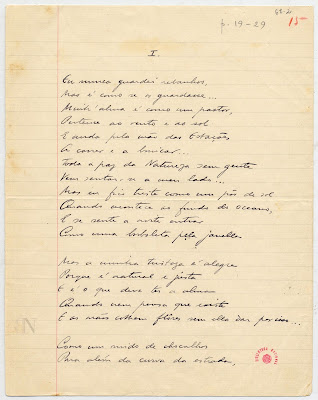 68-2r
p. 19-29
15-
I.
Eu nunca guardei rebanhos,
Mas é como se os guardasse...
Minh'alma é como um pastor,
Pertence ao vento e ao sol
E anda pela mão das Estações
A correr e a brincar...
Toda a paz da Natureza sem gente
Vem sentar-se a meu lado...
Mas eu fico triste como um pôr de sol
Quando arrefece no fundo do oceano,
E se sente a noite entrar
Como uma borboleta pela janella.
Mas a minha tristeza é alegre
Porque é natural e justa
E é o que deve ter a alma
Quando nem pensa que existe
E as mãos colhem flores sem ella dar por isso...
Como um ruido de chocalhos
Para além da curva da estrada,